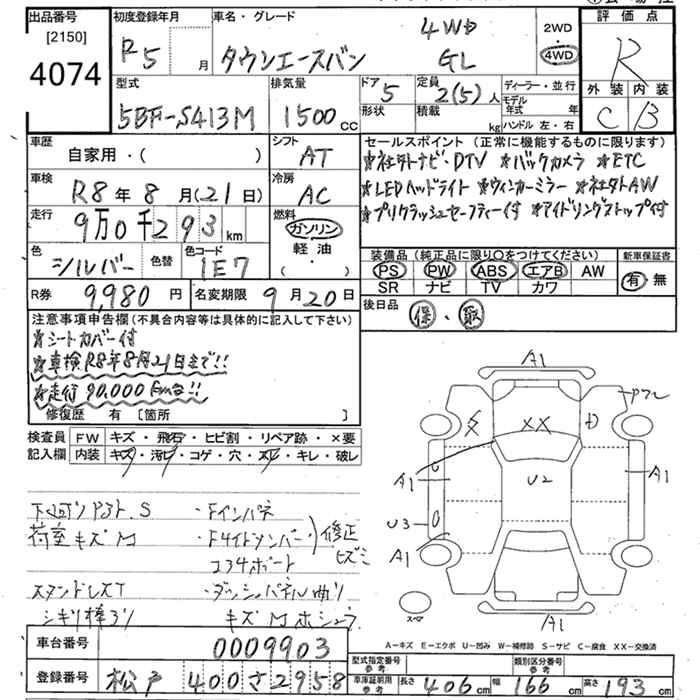 出品番号
[2150]
4074
初度登録年月
R5 月
車名・グレード
タウンエースバン
4WD
GL
2WD
・
4WD
評価点
R
外装 内装
C B
型式
5BF-S413M
排気量
1500 cc
ドア
5
形状
定員
2(5) 人
積載 kg
ディーラー・並行
モデル年式 年
ハンドル 左・右
車歴
自家用・( )
シフト
AT
車検
R8年8月(21日)
冷房
AC
走行
9万0千293 km
燃料
ガソリン
軽油
( ・ )
色
シルバー
色替
色コード
1E7
R券
9,980円
名変期限
9月20日
セールスポイント(正常に機能するものに限ります)
*社外ナビ・DTV *バックカメラ *ETC
*LEDヘッドライト *ウィンカーミラー *社外AW
*プリクラッシュセーフティー付 *アイドリングストップ付
装備品(純正品に限り○をつけてください)
PS PW ABS エアB AW
SR ナビ TV カワ
新車保証書
有・無
後日品
保・取
注意事項申告欄(不具合内容等は具体的に記入して下さい)
*シートカバー付
*車検R8年8月21日まで!!
*走行90,000km台!!
修復歴 有〔箇所 〕
検査員記入欄
FW キズ・飛石・ヒビ割・リペア跡・×要
内装 キズ・汚レ・コゲ・穴・スレ・キレ・破レ
荷室キズM
シキリ棒
・Fインパネ
・Fサイドメンバー
コアサポート
修正
・ダッシュパネル曲り
キズM
A1
XX
U2
A1
A1
U3
A1
A1
スペア
A-キズ E-エクボ U-凹み W-補修跡 S-サビ C-腐食 XX-交換済
車台番号
0009903
登録番号
松戸 400さ2958
型式指定番号
参考
類別区分番号
参考
車庫証明用
参考
長さ 406 cm 幅 166 cm 高さ 193 cm